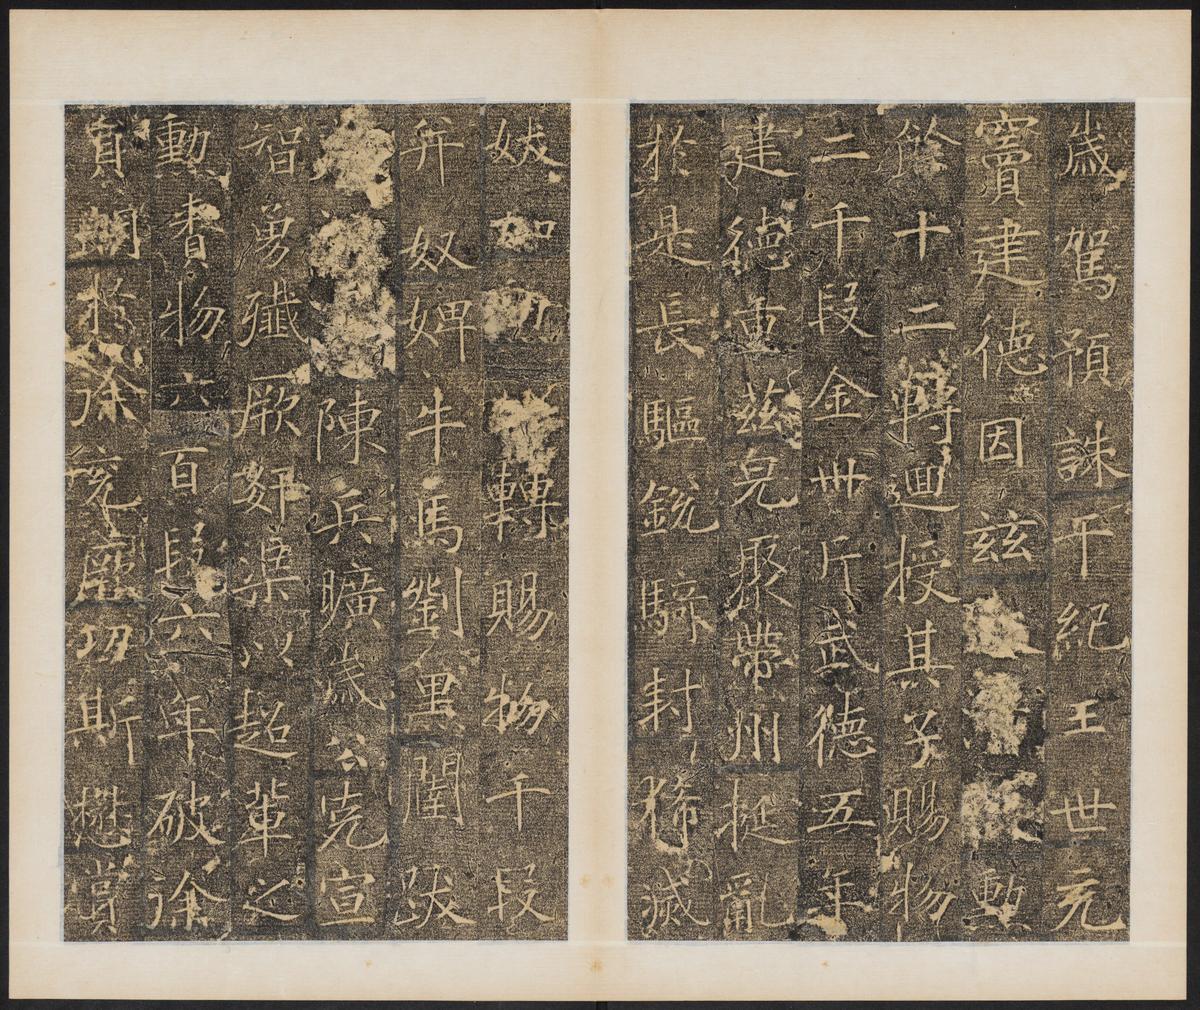 歲駕預誅干紀王世充
竇建德因茲勳
餘十二轉迴授其子賜物
二千段金卅斤武德五年
建德重茲皃聚帶州挺亂
於是長驅銳騎封豨滅
妖加轉賜物千段
并奴婢牛馬劉黑闥跋
陳兵曠歲公克宣
智勇殲厥姧渠以超輩之
勳賚物六百段六年破徐
員朗於徐兗厥功斯懋賞